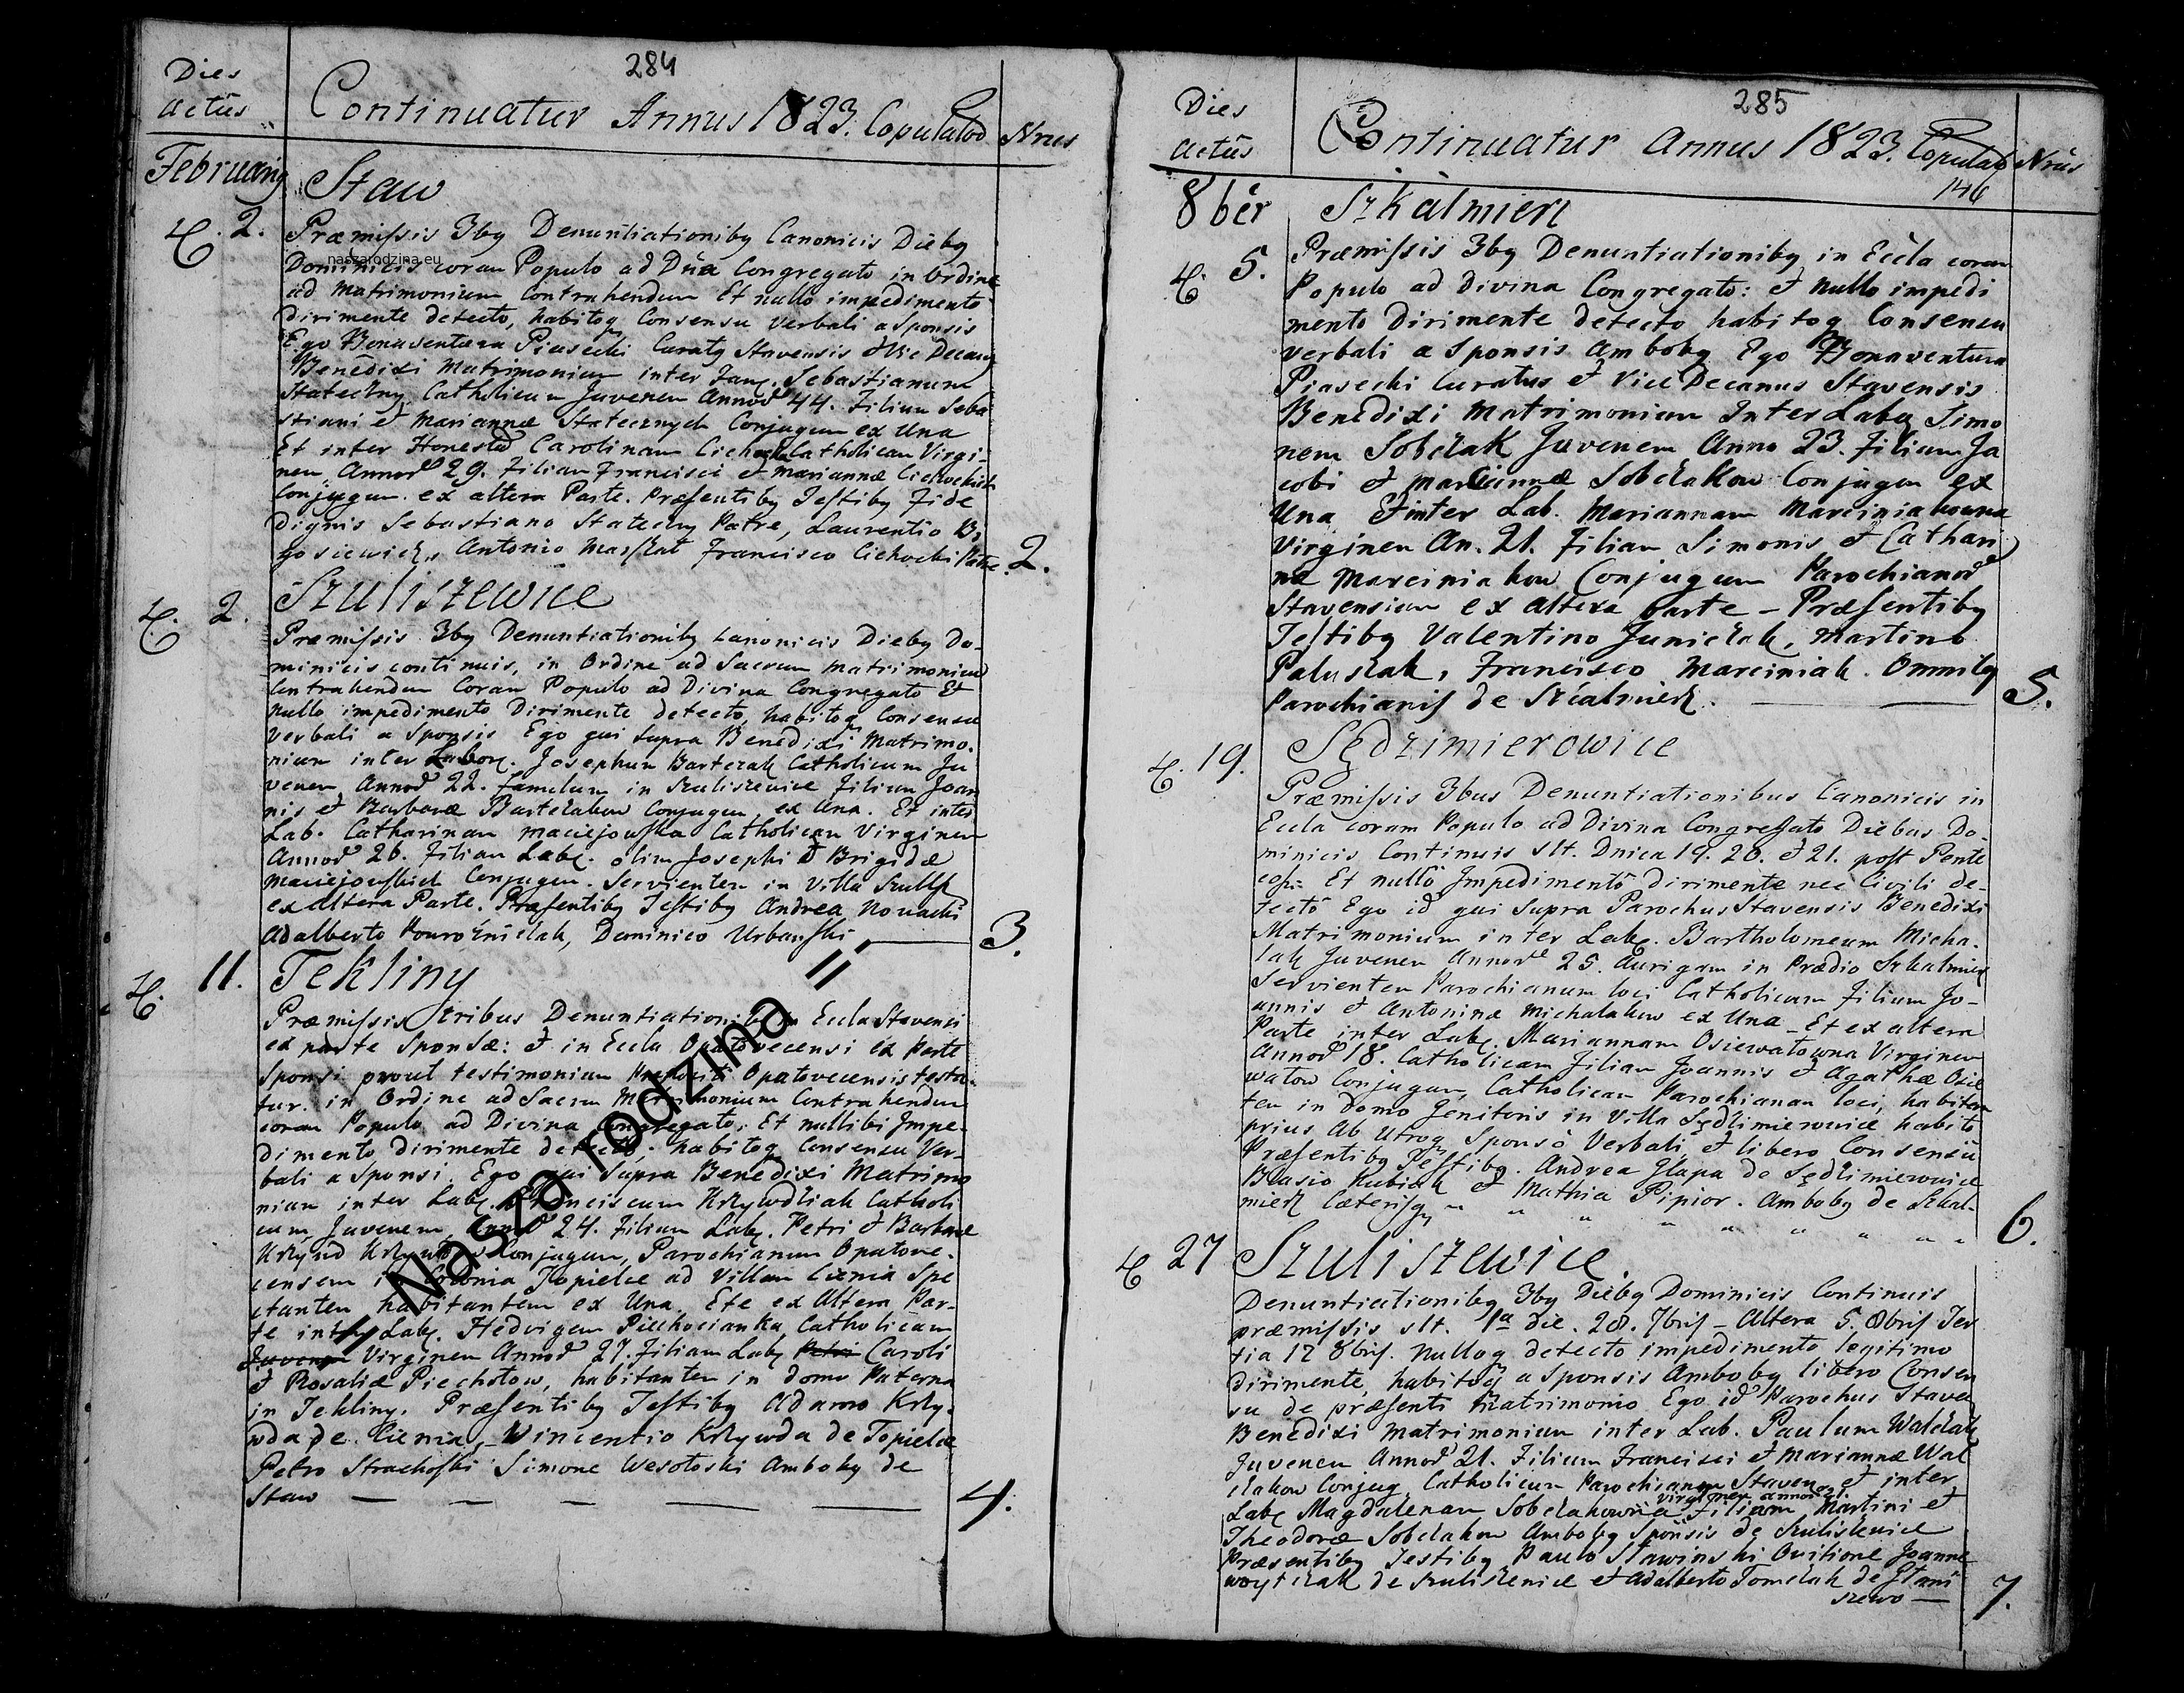 284
Dies
actûs
Continuatur Annus 1823. Copulatoȓ
Nrus
February
Staw
2.
Præmissis 3bꝫ Denuntiationibꝫ Canonicis Diebꝫ
Dominicis coram Populo ad Dña Congregato in Ordine
naszarodzina.eu
ad Matrimonium Contrahendum Et nullo impedimento
dirimente detecto, habitoqꝫ Consensu Verbali a Sponsis
Ego Bonaventura Piasecki Curatꝫ Stavensis
Benedixi Matrimonium inter Sebastianum
Stateczny, Catholicum Juvenem Annoȓ 44. Filium Seba
stiani et Mariannæ Statecznych Conjugum ex Una
Et inter Carolinam Catholicam Virgi-
nem Annoȓ 29. Filiam Francisci et Mariannæ Cichockich
Conjugum ex altera Parte. Præsentibꝫ Testibꝫ Fide
dignis Sebastiano Stateczny Patre, Laurentio Bi
gosiewicz, Antonio Francisco Cichocki Patre
2.
Szuliszewice
2.
Præmissis 3bꝫ Denuntiationibꝫ Canonicis Diebꝫ Do-
minicis continuis, in Ordine ad Sacrum Matrimonium
Contrahendum Coram Populo ad Divina Congregato Et
nullo impedimento Dirimente detecto, habitoqꝫ Consensu
Verbali a Sponsis Ego qui supra Benedixi Matrimo-
nium inter Labor. Josephum Bartczak Catholicum Ju
venem Annoȓ 22. famulum in Szuliszewice Filium Joan
nis et Barbaræ Bartczakow Conjugum ex Una. Et inter
Lab. Catharinam Maciejowska Catholicam Virginem
Annoȓ 26. Filiam Lab. olim Josephi et Brigidæ
Maciejowskich Conjugum. Servientem in Villa
ex altera Parte. Præsentibꝫ Testibꝫ Andrea Nowacki
Adalberto Powroźniczak, Dominico Urbański
3.
11.
Tekliny
Præmissis tribus Denuntiationibꝫ in Eccla Stavensi
ex parte Sponsæ: et in Eccla Opatovecensi ex Parte
Sponsi prout testimonium Opatovecensis testa-
tur. in Ordine ad Sacrum Matrimonium Contrahendum
coram Populo ad Divina Congregato, Et nullibi Impe-
dimento dirimente detecto, habitoqꝫ Consensu Ver-
bali a Sponsi. Ego qui Supra Benedixi Matrimo
nium inter Lab. Franciscum Krzywdziak Catholi
cum Juvenem Annoȓ 24. Filium Lab. Petri et Barbaræ
Conjugum, Parochianum Opatove-
censem in Colonia Topielce ad Villam Cienia Spe
ctantem habitantem ex Una. Ete ex Altera Par-
te inter Lab. Hedvigem Piechocianka Catholicam
Juvenem Virginem Annoȓ 27. Filiam Lab. Petri Caroli
et Rosaliæ Piechotow, habitantem in domo Paterna
in Tekliny. Præsentibꝫ Testibꝫ Adamo Krzy-
wda de Cienia, Wincentio Krzywda de Topielce
Petro Strachoski Simone Wesołoski Ambobꝫ de
Staw
4.
|| Nasza rodzina ||
285
Dies
actûs
Continuatur Annus 1823. Copulatoȓ
146
Nrûs
8bêr
Szkalmierz
5.
Præmissis 3bꝫ Denuntiationibꝫ in Eccla coram
Populo ad Divina Congregato: et Nullo impedi
mento Dirimente detecto habitoqꝫ Consensu
Verbali a Sponsis Ambobꝫ Ego Bonaventura
Piasecki Curatus et Vice Decanus Stavensis
Benedixi Matrimonium Inter Lab. Simo
nem Sobczak Juvenem Anno 23. Filium Ja
cobi et Mariannæ Sobczakow Conjugum ex
Una Et inter Lab. Mariannam Marciniakowna
Virginem An. 21. Filiam Simonis et Cathari
næ Marciniakow Conjugum Parochianoȓ
Stavensium ex altera parte – Præsentibꝫ
Testibꝫ Valentino Juniczak, Martino
Paluszak, Francisco Marciniak. Omnibꝫ
Parochianis de Szkalmierz.
5.
Sędzimierowice
19.
Præmissis 3bus Denuntiationibus Canonicis in
Eccla coram Populo ad Divina Congregato Diebus Do-
minicis Continuis slt. Dnica 19. 20. et 21. post Pente
cos. Et nullô Impedimentô dirimente nec Civili de-
tectô Ego id qui supra Parochus Stavensis Benedixi
Matrimonium inter Lab. Bartholomeum Micha-
lak Juvenem Annoȓ 25. Aurigam in Prædio Szkalmierz
Servientem Parochianum loci Catholicum Filium Jo-
annis et Antoninæ Michalakow ex Una – Et ex altera
Parte inter Lab. Mariannam Osiewałowna Virginem
Annoȓ 18. Catholicam Filiam Joannis et Agathæ Osie
wałow Conjugum, Catholicam Parochianam loci, habitan
tem in Domo Genitoris in Villa Sędzimierowice habitô
prius Ab Utroqꝫ Sponsô Verbali, et libero Consensû
Præsentibꝫ Testibꝫ. Andrea Glapa de Sędzimierowice
Blasio Kubiak et Mathia Pipior. Ambobꝫ de Szkal-
mierz Cæterisqꝫ " " " " " " " "
6.
27
Szuliszewice.
Denuntiationibꝫ 3bꝫ Diebꝫ Dominicis Continuis
præmissis slt. 1a die. 28. 7bris – Altera 5. 8bris Ter
tia 12 8bris. Nulloqꝫ detecto impedimento legitimo
dirimente, habitoqꝫ a Sponsis Ambobꝫ libero Consen
su de præsenti Matrimonio Ego id Parochus Staven
Benedixi Matrimonium inter Lab. Paulum Walczak
Juvenem Annoȓ 21. Filium Francisci et Mariannæ Wal
czakow Conjug. Catholicum Parochianum Staven. et inter
Virginem annor
Lab Magdalenam Sobczakowna Filiam Martini et
Theodoræ Sobczakow Ambobꝫ Sponsis de Szuliszewice
Præsentibꝫ Testibꝫ Paulo Sławinski Ovilione Joanne
Woytczak de Szuliszewice et Adalberto Tomczak de Stani
szewo
7.